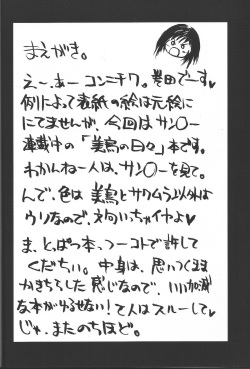 まえがき。
え〜、あーコンニチワ。誉田でーす♥
例によって表紙の絵は元絵に
にてませんが、今回はサン〇ー
連載中の「美鳥の日々」本です。
わかんねー人は、サン〇ーを見て。
んで、色は美鳥とサクムラ以外は
ウソなので、えい いちゃイヤよ♥
ま、とっぱつ本、つーコトで許して
くだちい。中身は、思いつくまま
かきちらした感じなので、いい加減
な本がゆるせない！て人はスルーして♥
じゃ、またのちほど。